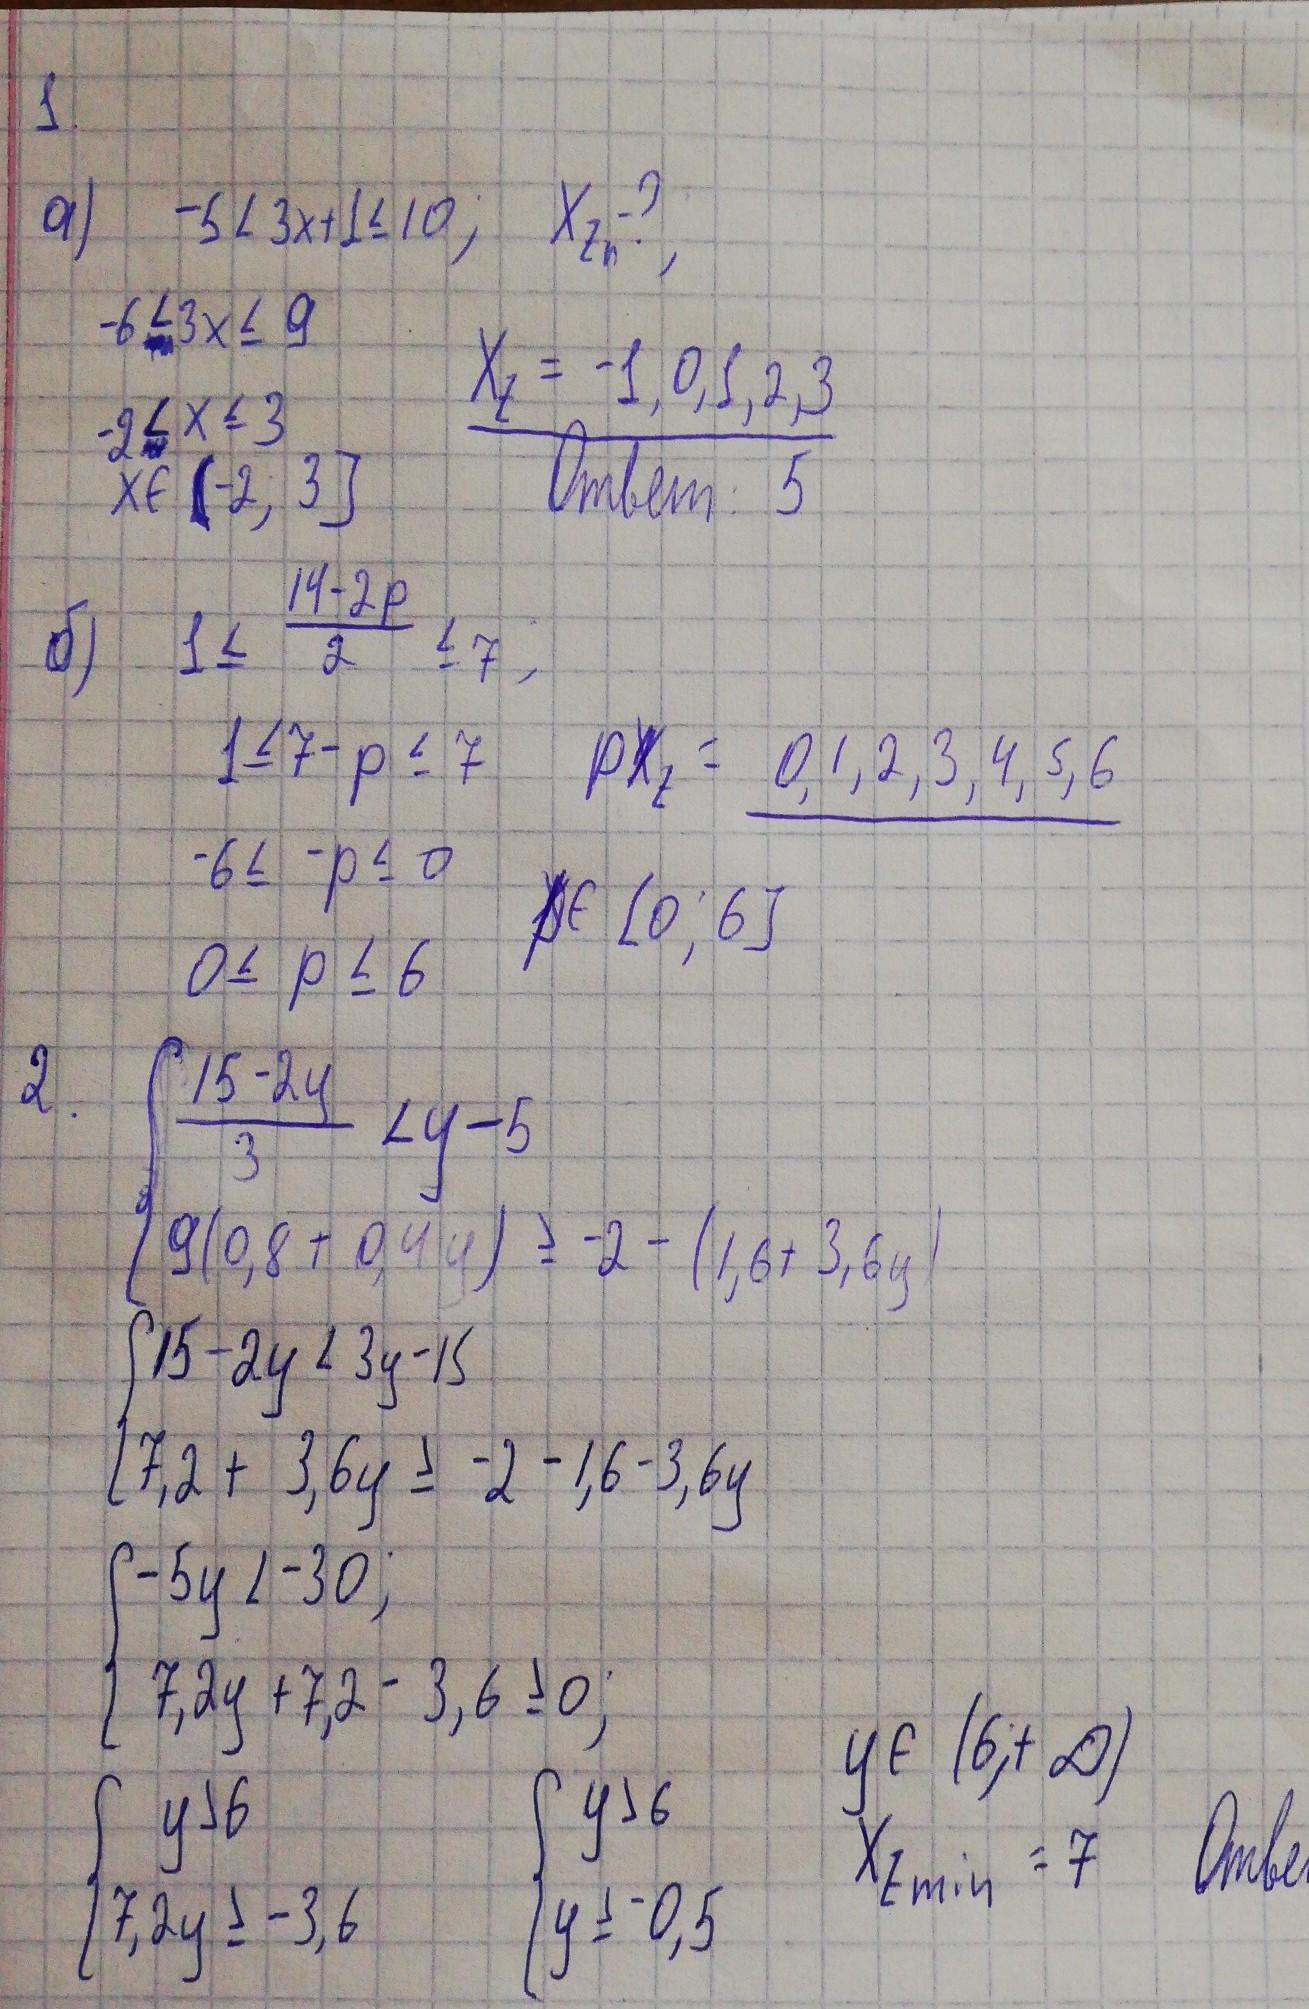 1.
а) -5 < 3x+1 ≤ 10; X_Zn - ?;
-6 < 3x ≤ 9
-2 < x ≤ 3
X_Z = -1, 0, 1, 2, 3
x ∈ (-2; 3]
Ответ: 5
б) 1 ≤ (14-2p)/2 ≤ 7;
1 ≤ 7-p ≤ 7
p_Z = 0, 1, 2, 3, 4, 5, 6
-6 ≤ -p ≤ 0
p ∈ [0; 6]
0 ≤ p ≤ 6
2. { (15-2y)/3 < y-5
9(0,8 + 0,4y) ≥ -2 - (1,6 + 3,6y)
{ 15-2y < 3y-15
7,2 + 3,6y ≥ -2 - 1,6 - 3,6y
{ -5y < -30;
7,2y + 7,2 - 3,6 ≥ 0;
{ y > 6
7,2y ≥ -3,6
{ y > 6
y ≥ -0,5
y ∈ (6; +∞)
X_Z min = 7